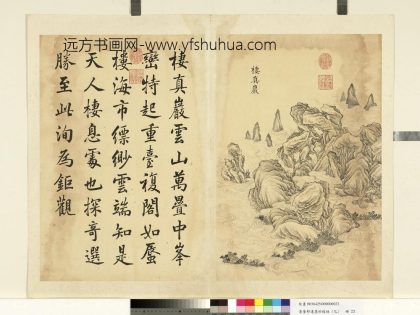 远方书画网-www.yfshuhua.com
棲真巖
棲真巖雲山萬疊中峯
巒特起重臺複閣如蜃
樓海市縹緲雲端知是
天人棲息處也探奇選
勝至此洵為鉅觀